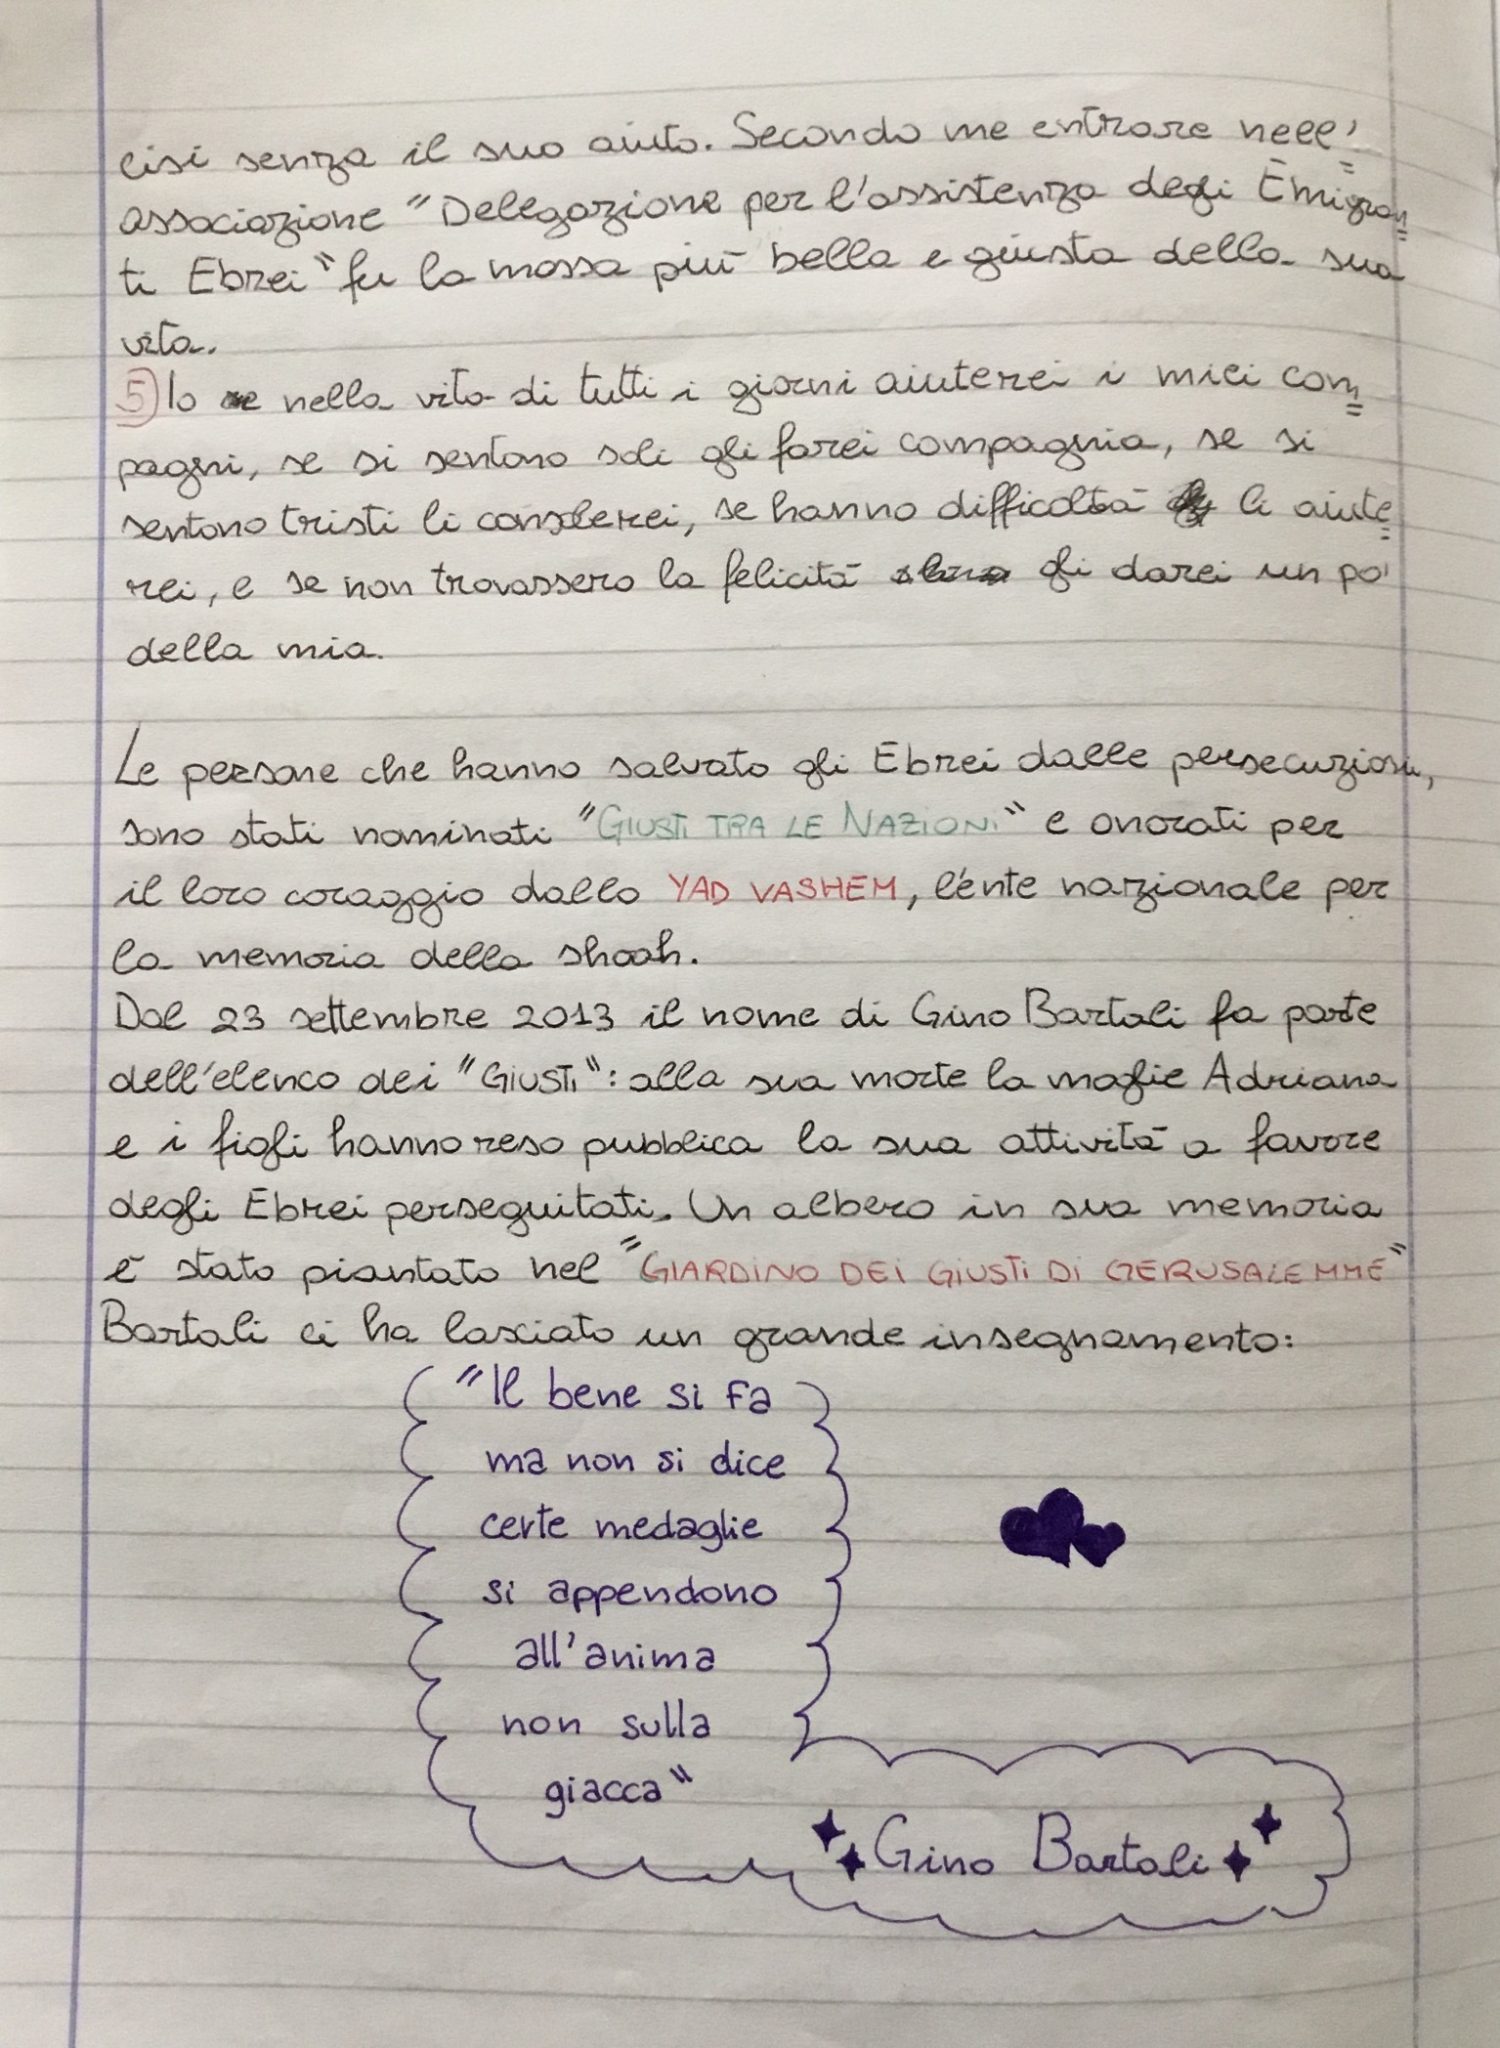 cisi senza il suo aiuto. Secondo me entrare nell'=
associazione "Delegazione per l'assistenza degli Emigran=
ti Ebrei" fu la mossa più bella e giusta della sua
vita.
5) Io nella vita di tutti i giorni aiuterei i miei com=
pagni, se si sentono soli gli farei compagnia, se si
sentono tristi li consolerei, se hanno difficoltà li aiute=
rei, e se non trovassero la felicità gli darei un po'
della mia.
Le persone che hanno salvato gli Ebrei dalle persecuzioni,
sono stati nominati "GIUSTI TRA LE NAZIONI" e onorati per
il loro coraggio dallo YAD VASHEM, l'ente nazionale per
la memoria della shoah.
Dal 23 settembre 2013 il nome di Gino Bartali fa parte
dell'elenco dei "GIUSTI": alla sua morte la moglie Adriana
e i figli hanno reso pubblica la sua attività a favore
degli Ebrei perseguitati. Un albero in sua memoria
è stato piantato nel "GIARDINO DEI GIUSTI DI GERUSALEMME"
Bartali ci ha lasciato un grande insegnamento:
"Il bene si fa
ma non si dice
certe medaglie
si appendono
all'anima
non sulla
giacca"
Gino Bartali